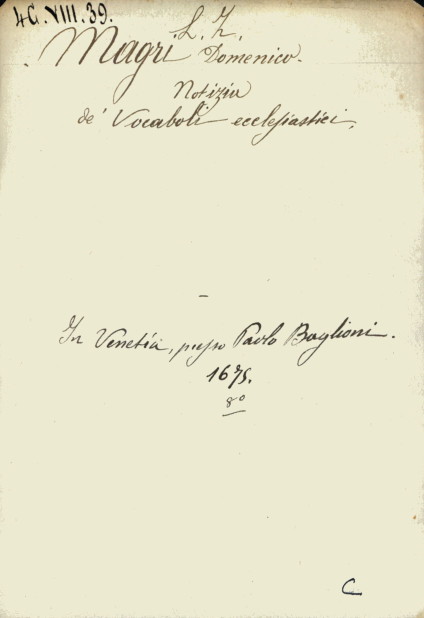 4C.VIII.39.
L. Z.
Magri Domenico.
Notizia
de' Vocaboli ecclesiastici.
In Venetia, presso Paolo Baglioni.
1675.
8º
C